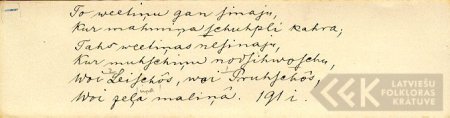 To weetiņu gan sinaju,
Kur mahmiņa schuhpli kahra;
Taho weetiņas nesinaju,
Kur muhschiņu nodsihwoschu,
Woi Leischôs, wai Pruhschôs,
Woi zeļa maliņâ. 191 i.
LATVIEŠU
FOLKLORAS
KRĀTUVE